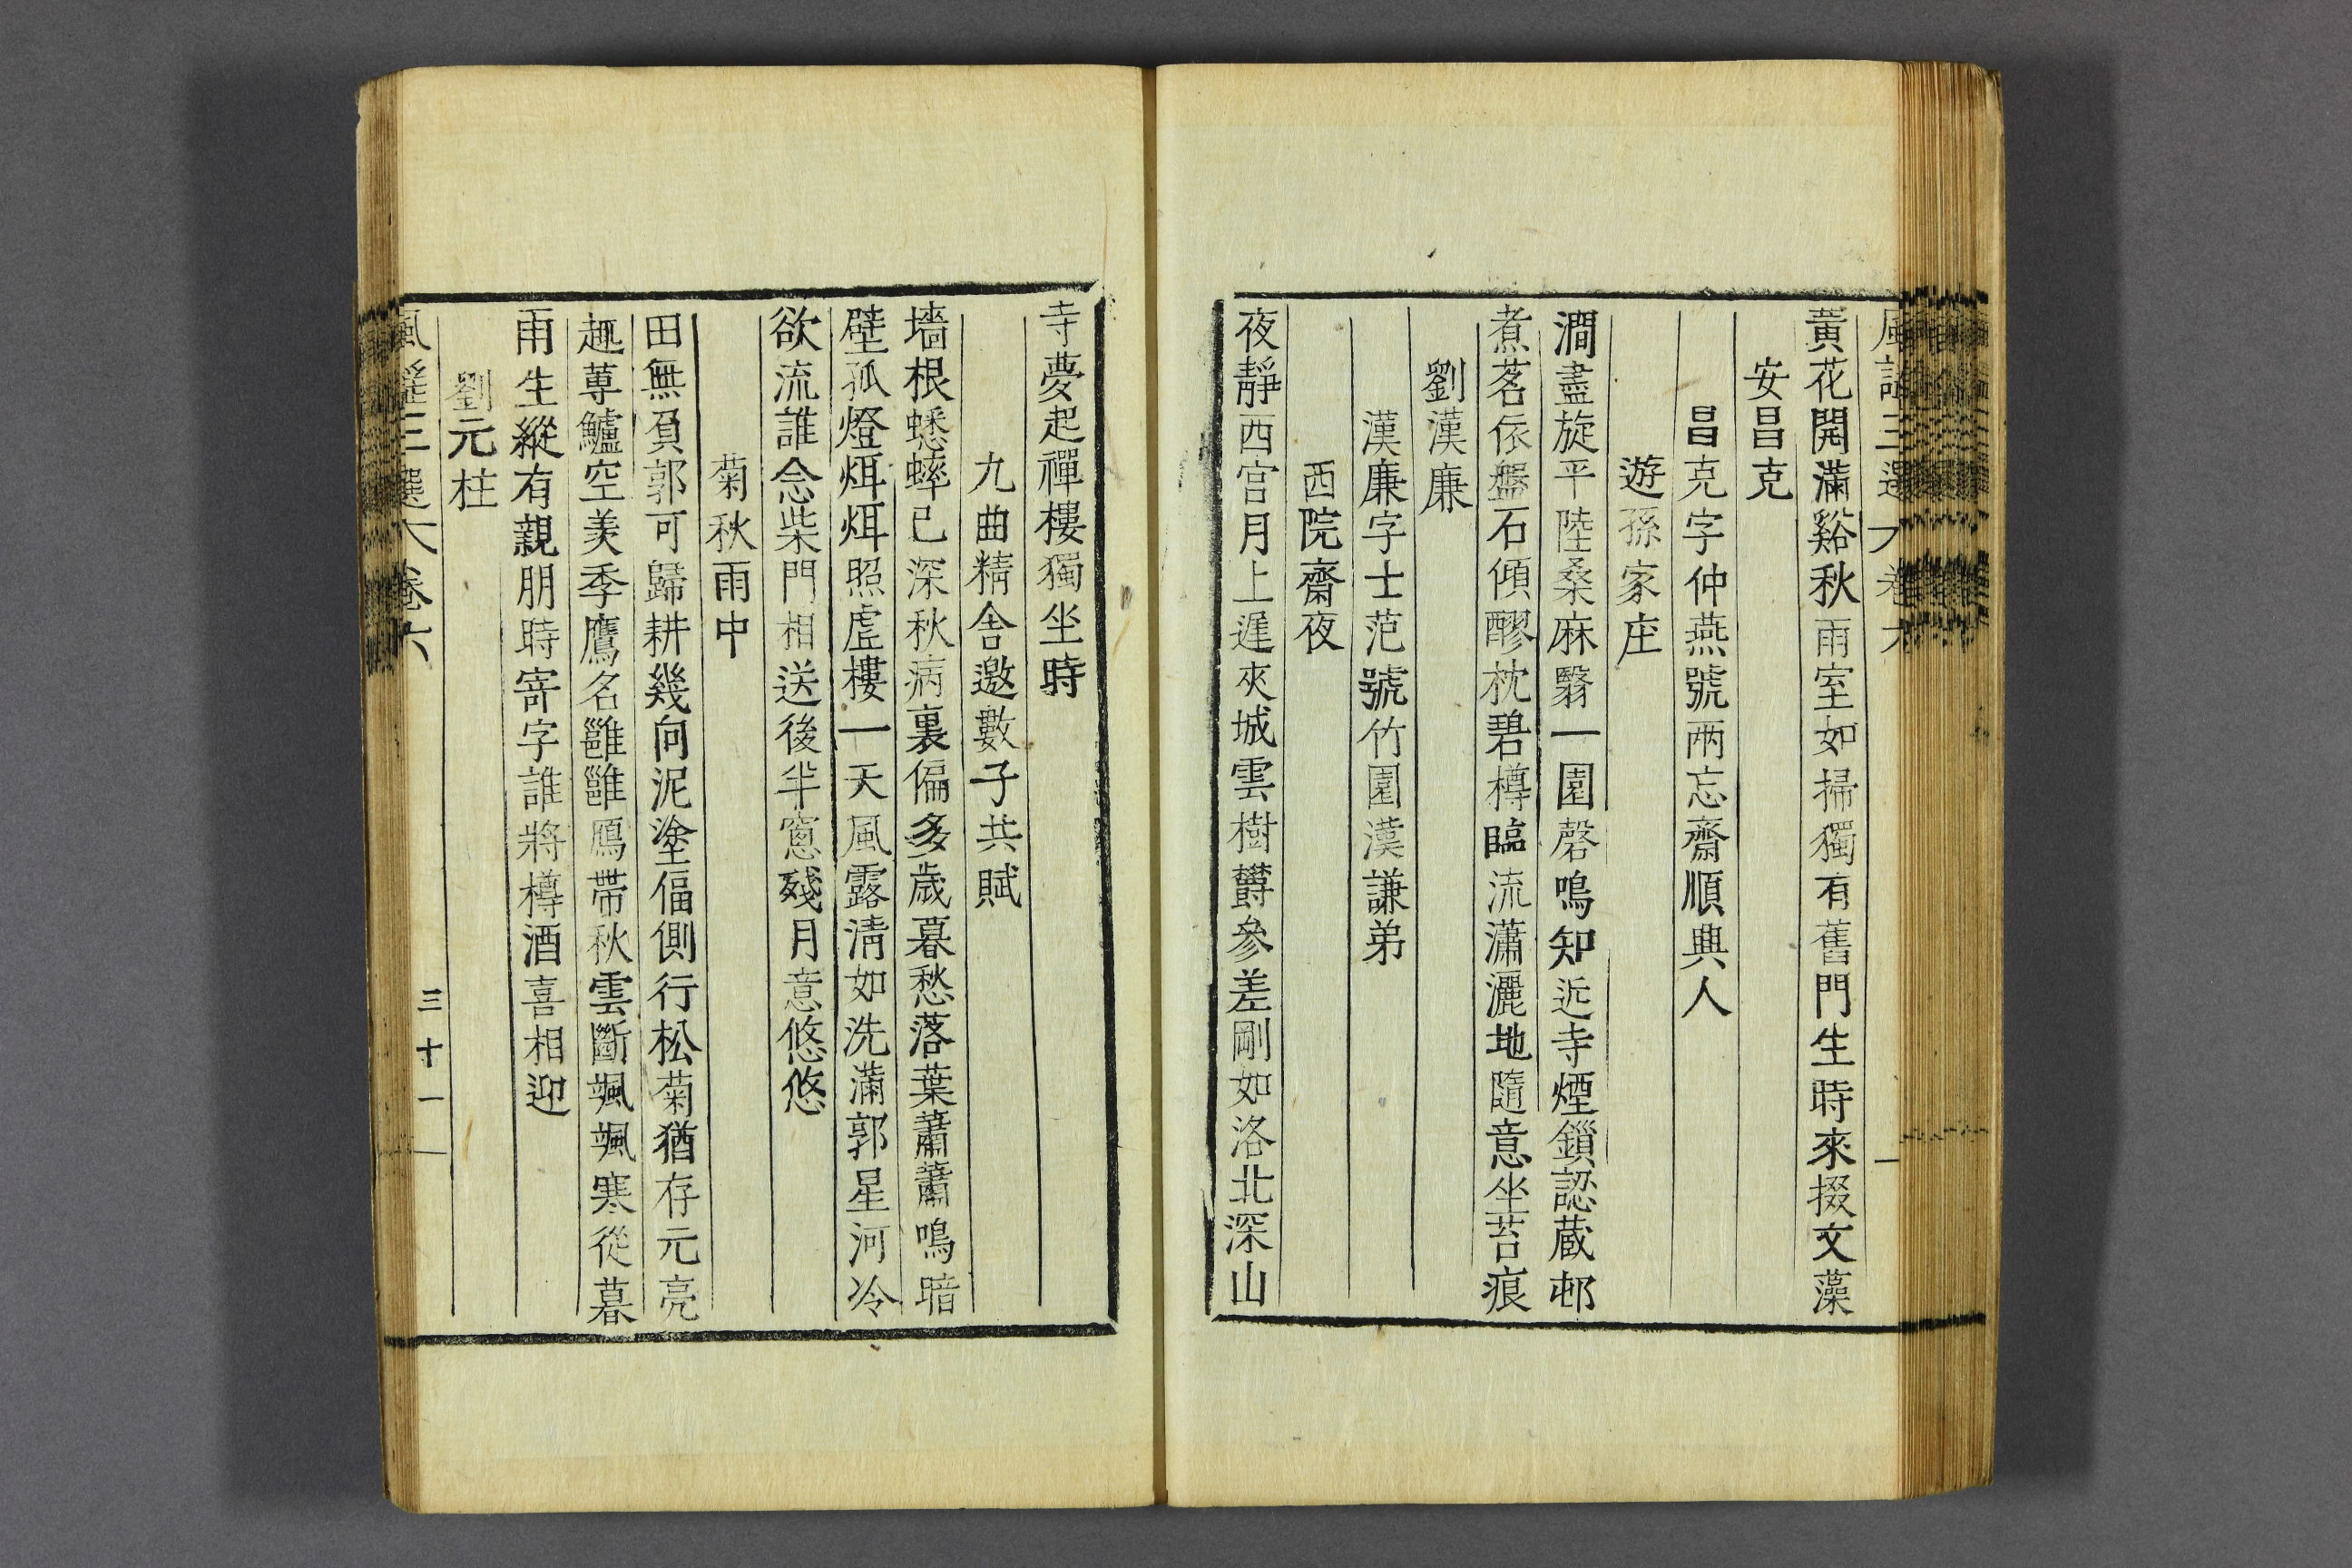 風謠三選 卷六
黃花開滿谿秋雨室如掃獨有舊門生時來掇文藻
安昌克
昌克字仲燕號兩忘齋順興人
遊孫家庄
澗盡旋平陸桑麻翳一園磬鳴知近寺煙鎖認蔵邨
煮茗依盤石傾醪枕碧樽臨流瀟灑地隨意坐苔痕
劉漢廉
漢廉字士范號竹園漢謙弟
西院齋夜
夜靜西宮月上遲夾城雲樹欝參差剛如洛北深山
寺夢起禪樓獨坐時
九曲精舍邀數子共賦
墻根蟋蟀已深秋病裏偏多歲暮愁落葉蕭蕭鳴暗
壁孤燈烟烟照虛樓一天風露淸如洗滿郭星河冷
欲流誰念柴門相送後半窻殘月意悠悠
菊秋雨中
田無負郭可歸耕幾向泥塗偪側行松菊猶存元亮
趣蓴鱸空羡季鷹名雝雝鴈帶秋雲斷颯颯寒從暮
雨生縱有親朋時寄字誰將樽酒喜相迎
劉元柱
風謠三選 卷六
三十一